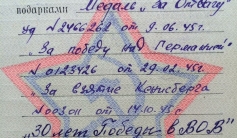 подарками Медаль „За Отвагу"
Уд N 2466262 от 9.06.45г.
„За победу над Германией"
N 0123426 от 29.02.45г.
„За взятие Кенисберга
N 003011 от 14.10.45г.
„30 лет Победы в ВОВ"